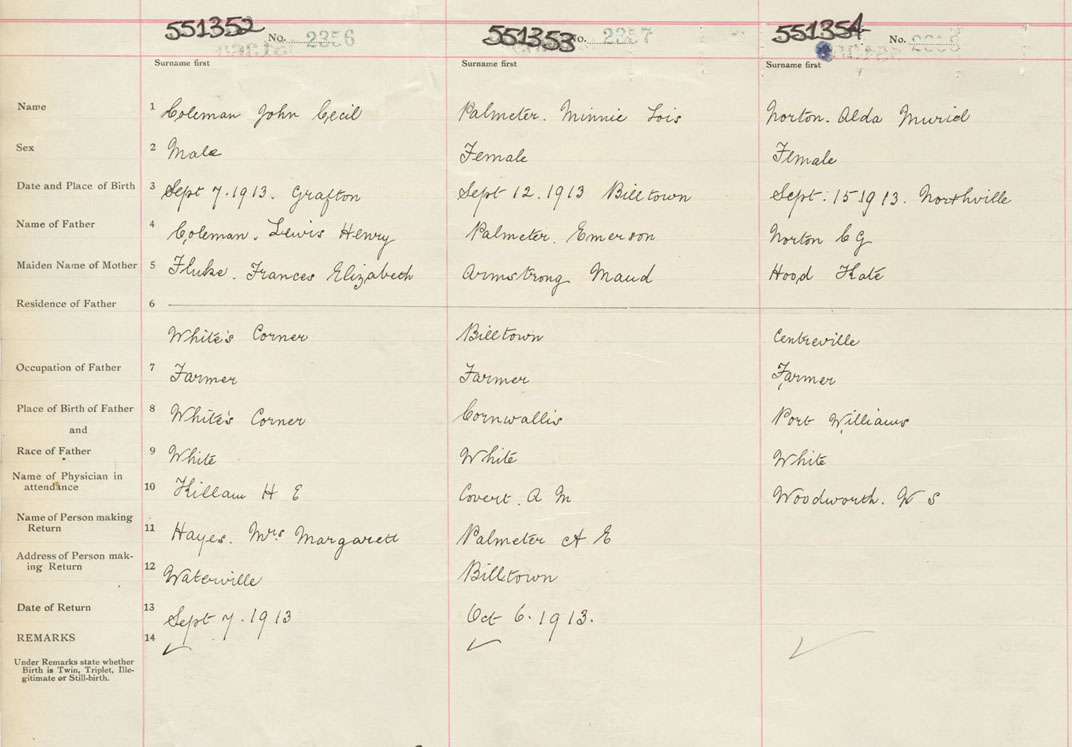 551352 No. 2356 551353 No. 2357 551354 No.
Surname first Surname first Surname first
Name 1 Coleman John Cecil Palmeter. Minnie Lois Norton. Alda Muriel
Sex 2 Male Female Female
Date and Place of Birth 3 Sept 7.1913. Grafton Sept 12.1913 Billtown Sept. 15 1913. Northville
Name of Father 4 Coleman. Lewis Henry Palmeter. Emerson Norton C G
Maiden Name of Mother 5 Fluke. Frances Elizabeth Armstrong Maud Hood Kate
Residence of Father 6
White's Corner Billtown Centreville
Occupation of Father 7 Farmer Farmer Farmer
Place of Birth of Father 8 White's Corner Cornwallis Port Williams
and
Race of Father 9 White White White
Name of Physician in
attendance 10 Killam H E Covert. A M Woodworth. W S
Name of Person making
Return 11 Hayes. Mrs Margarett Palmeter A E
Address of Person mak-
ing Return 12 Waterville Billtown
Date of Return 13 Sept 7.1913 Oct 6.1913.
REMARKS 14
Under Remarks state whether
Birth is Twin, Triplet, Ille-
gitimate or Still-birth.